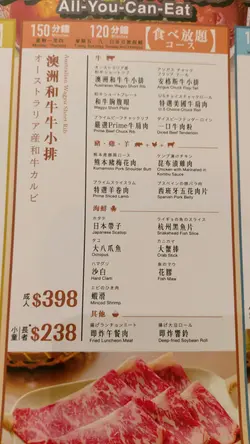 All-You-Can-Eat
150分鐘
120分鐘
食べ放題
コース
澳洲和牛牛小排
オーストラリア産和牛カルビ
Australian Wagyu Short Rib
成人 $398
小童 長者 $238
牛
澳洲和牛牛小排
Australian Wagyu Short Rib
安格斯牛小排
Angus Chuck Flap Tail
和牛胸腹眼
特選美國牛肩肉
嚴選Prime牛肩肉
Prime Beef Chuck Rib
一口牛肉粒
Diced Beef Tenderloin
豬・雞・羊
熊本縣豬梅花肉
Kumamoto Pork Shoulder Butt
昆布漬雞肉
Chicken with Marinated in Kombu Sauce
特選羊卷肉
Sliced Lamb
西班牙五花肉片
Spanish Pork Belly
海鮮
ホタテ
日本帶子
Japanese Scallop
杭州黑魚片
Snakehead Fish Slice
タコ
大八爪魚
Octopus
カニカマ
大蟹棒
Crab Stick
ハマグリ
沙白
Hard Clam
花膠
Fish Maw
蝦滑
Minced Shrimp
其他
揚げランチョンミート
即炸午餐肉
Fried Luncheon Meat
即炸響鈴
Deep-fried Soybean Roll